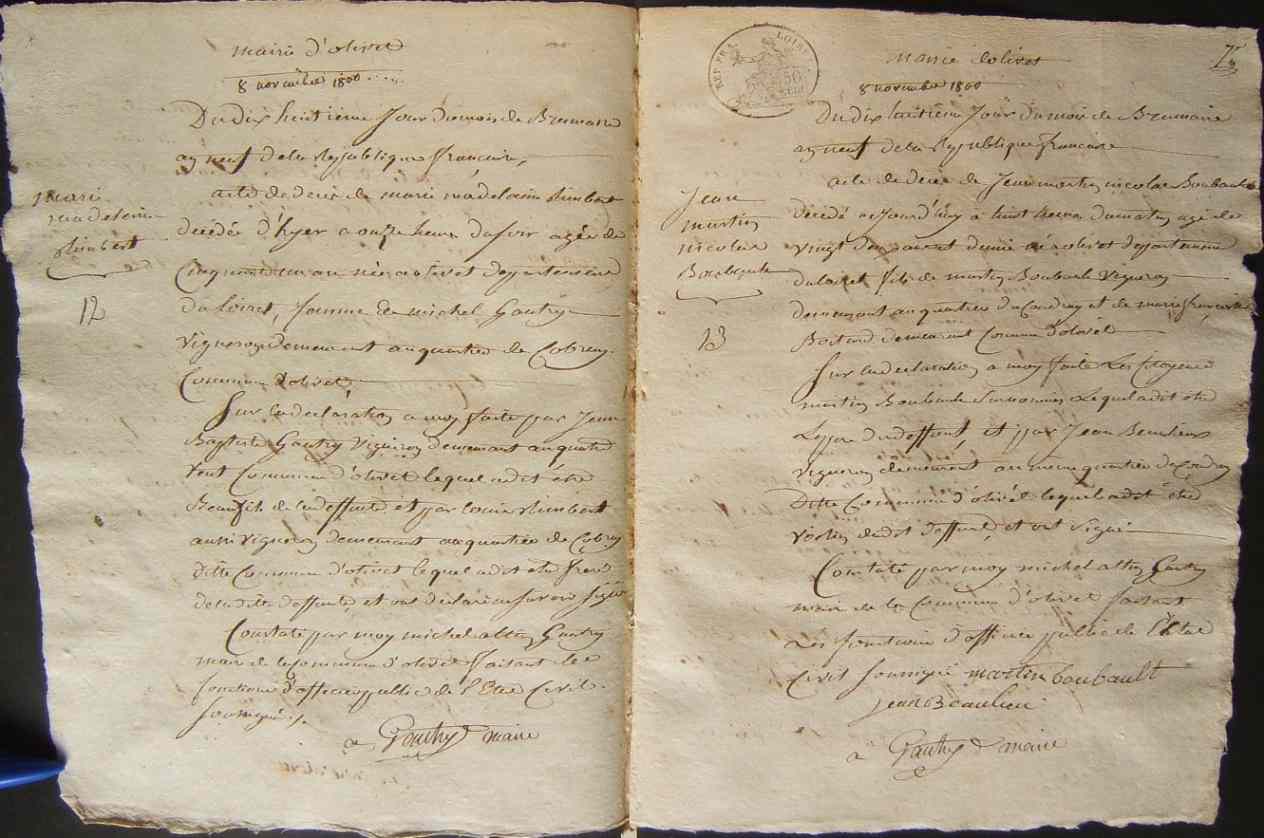 mairie d'olivet
8 novembre 1800
Du dix huitieme Jour du mois de Brumaire
an neuf de la Republique francaise,
acte de deces de marie madelaine Rimbert
marie
madelaine
Rimbert
12
décédée d'hyer a onze heures du soir agée de
Cinquante un an née a olivet departement
du loiret, femme de michel Gautry
Vigneron demeurant au quartier de Cobray
Commune d'olivet
Sur la declaration a moy faite par Jean
Baptiste Gautry Vigneron demeurant au quartier
Commune d'olivet lequel a dit être
Beaufils de la deffunte et par louis Rimbert
aussi Vigneron demeurant au quartier de Cobray
ditte Commune d'olivet lequel a dit etre frere
de la ditte deffunte et ont déclaré ne savoir signé
Constaté par moy michel altin Gautry
maire de la Commune d'olivet faisant les
fonctions d'officier public de l'Etat Civil
Soussigné
a Gautry maire
REP. FRA. LOIRET
50
mairie d'olivet
8 novembre 1800
Du dix huitieme Jour du mois de Brumaire
an neuf de la Republique francaise
acte de deces de Jean martin nicolas Boubault
Jean
martin
nicolas
Boubault
13
décédé aujourd'huy a huit heures du matin agé de
vingt deux ans et demie né a olivet departement
du loiret fils de martin Boubault Vigneron
demeurant au quartier du Coudray et de marie francoise
demeurant Commune d'olivet
Sur la declaration a moy faite Les Citoyens
martin Boubault lequel a dit etre
Le pere du deffunt, et par Jean Beaulieu
Vigneron demeurant au meme quartier du Coudray
Ditte Commune d'olivet lequel a dit etre
voisin dudit deffunt, et ont signé
Constaté par moy michel altin Gautry
maire de la Commune d'olivet faisant
Les fonctions d'officier public de l'Etat
Civil Soussigné martin boubault
jean Beaulieu
a Gautry maire